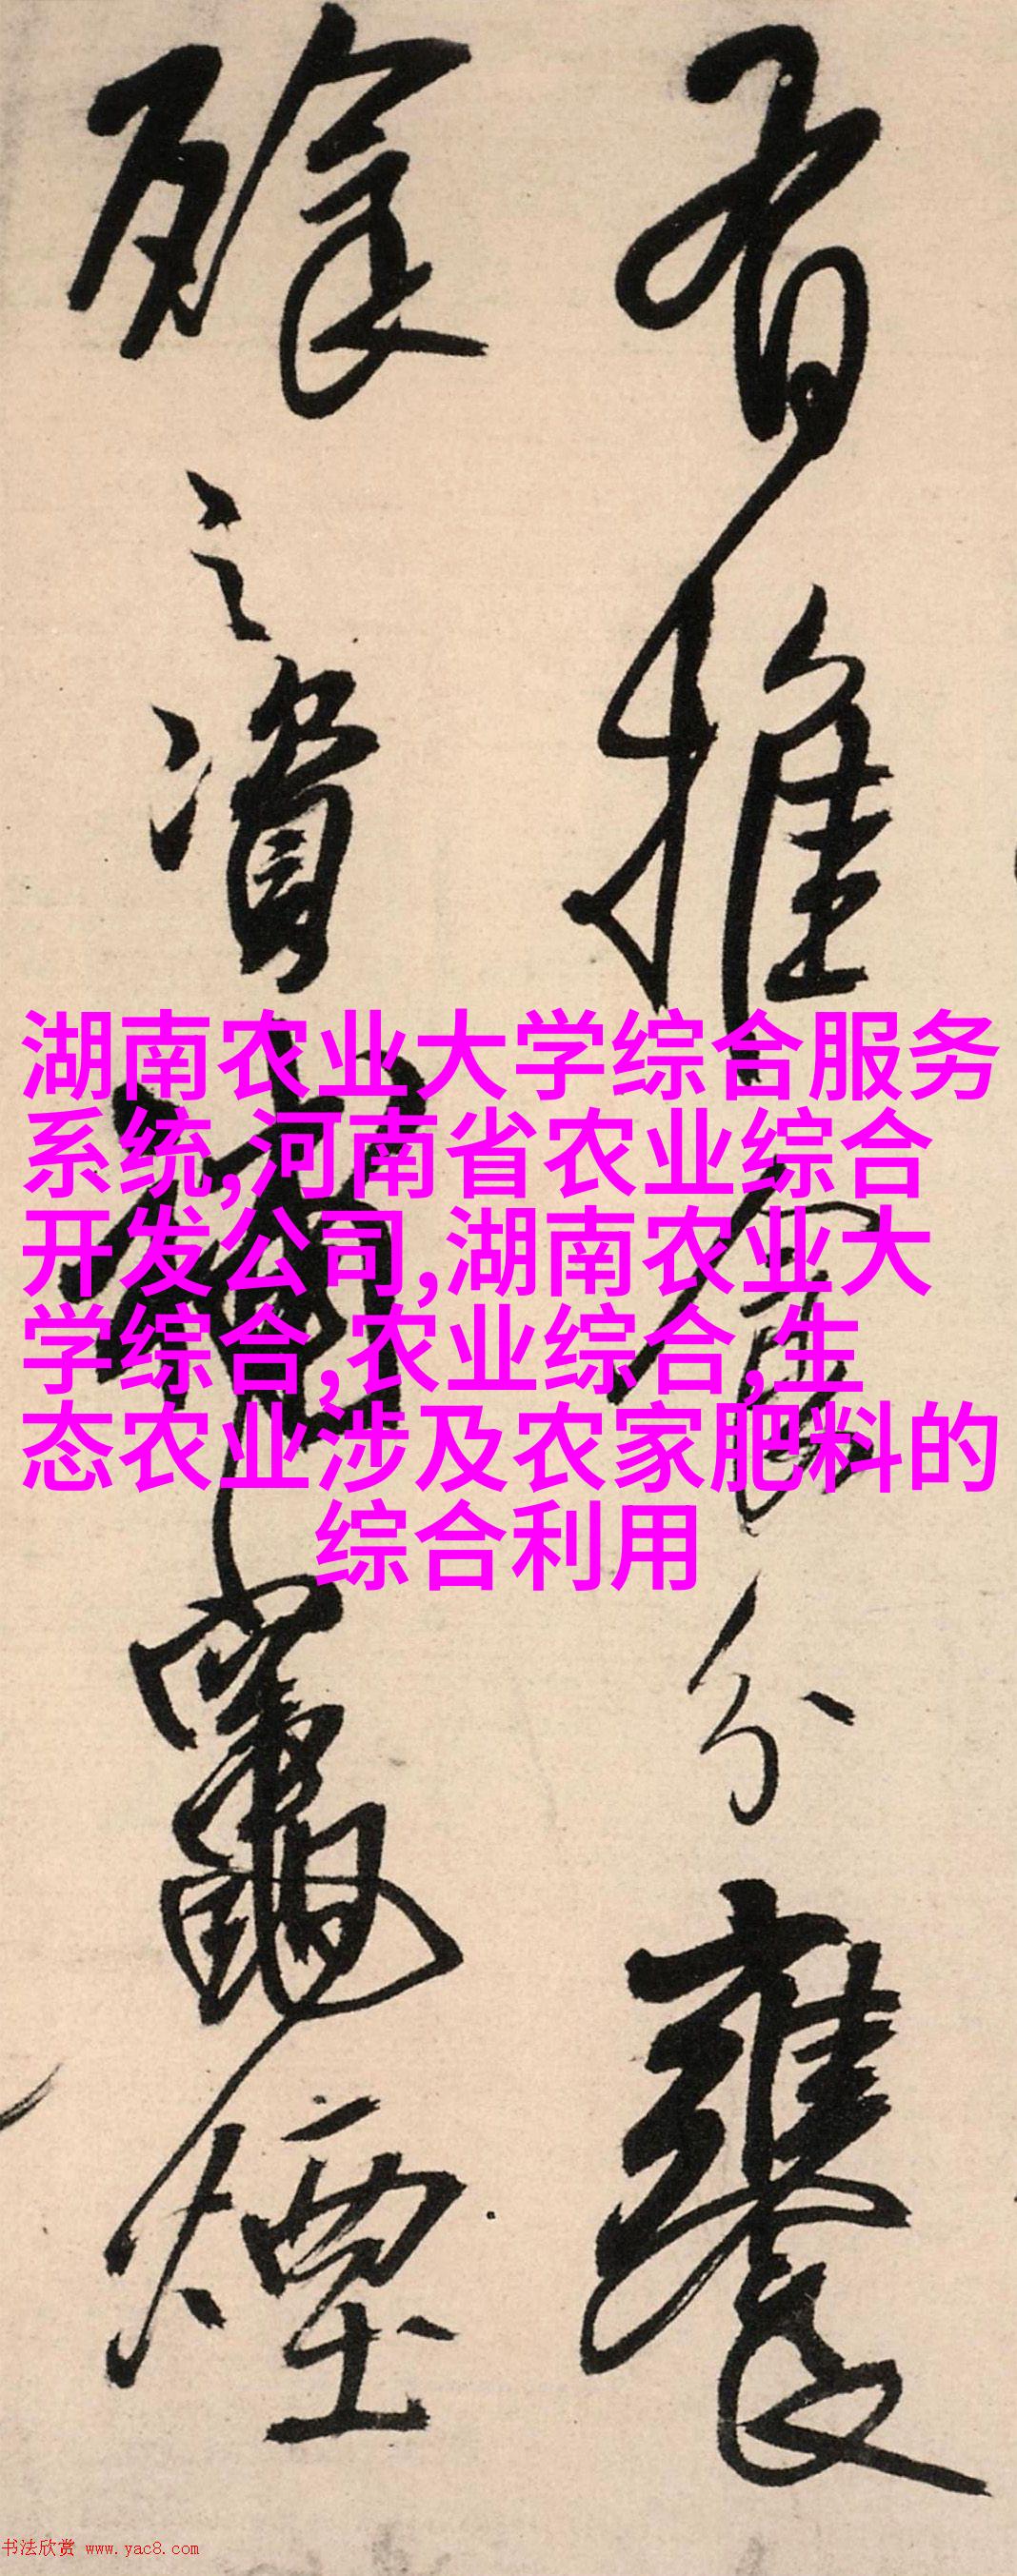 有推食分饔
餘之資竈煙
湖南农业大学综合服务
系统,河南省农业综合
开发公司,湖南农业大
学综合,农业综合,生
态农业涉及农家肥料的
综合利用
书法欣赏 www.yac8.com